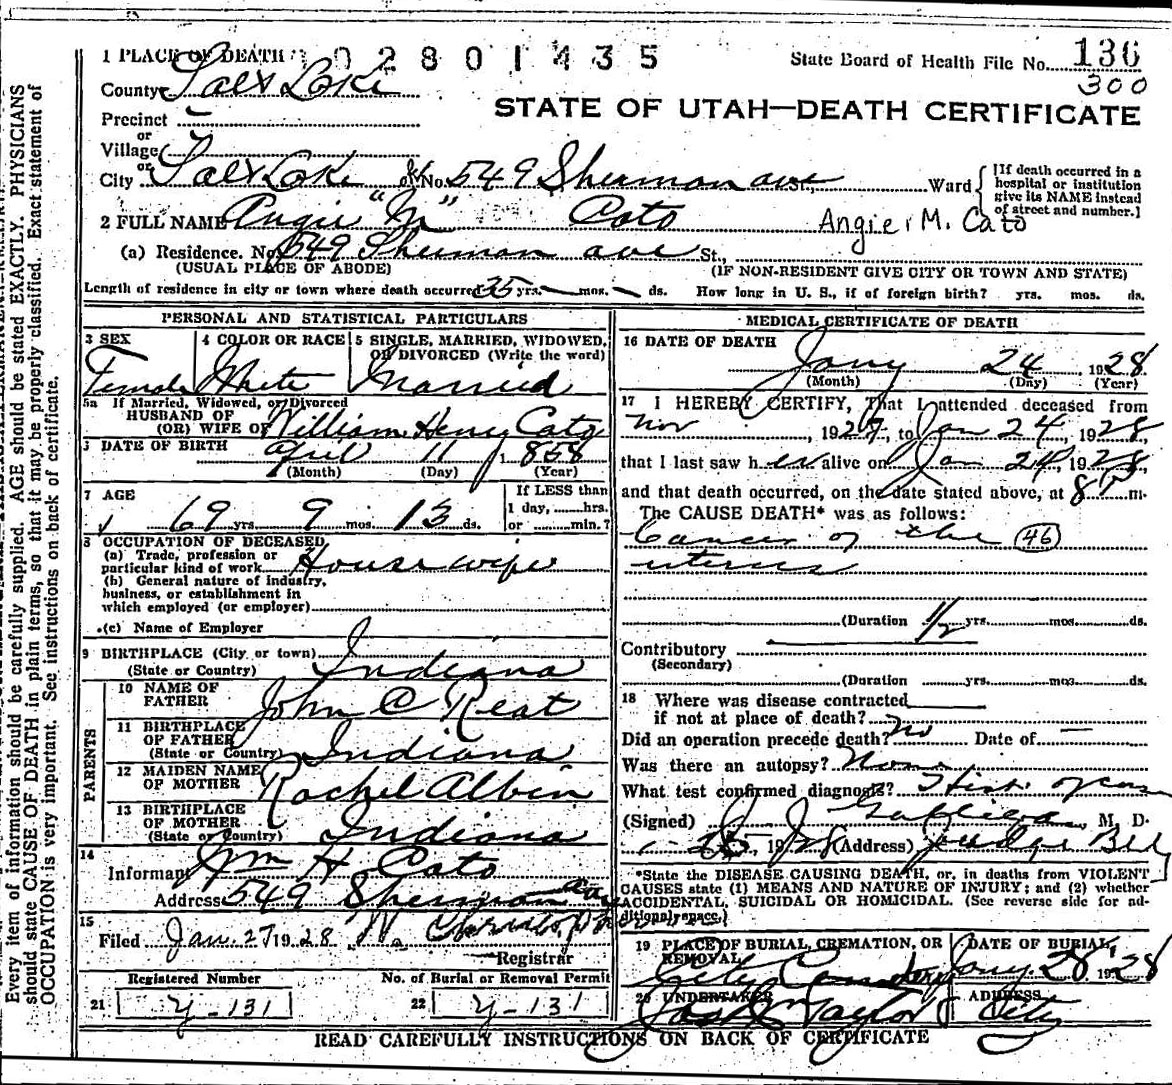 1 PLACE OF DEATH 02801435 State Board of Health File No. 136
300
County Salt Lake
STATE OF UTAH—DEATH CERTIFICATE
Precinct
or
Village
or
City Salt Lake No. 549 Sherman ave St., Ward
[If death occurred in a hospital or institution give its NAME instead of street and number.]
2 FULL NAME Angie "M" Cato Angie M. Cato
(a) Residence. No. 549 Sherman ave St.,
(USUAL PLACE OF ABODE) (IF NON-RESIDENT GIVE CITY OR TOWN AND STATE)
Length of residence in city or town where death occurred 35 yrs. — mos. — ds. How long in U. S., if of foreign birth? yrs. mos. ds.
PERSONAL AND STATISTICAL PARTICULARS
3 SEX
Female
4 COLOR OR RACE
White
5 SINGLE, MARRIED, WIDOWED,
OR DIVORCED (Write the word)
Married
5a If Married, Widowed, or Divorced
HUSBAND OF
(OR) WIFE OF William Henry Cato
DATE OF BIRTH April 11 1858
(Month) (Day) (Year)
7 AGE
69 yrs 9 mos. 13 ds.
If LESS than
1 day, hrs.
or min.?
8 OCCUPATION OF DECEASED
(a) Trade, profession or
particular kind of work Housewife
(b) General nature of industry,
business, or establishment in
which employed (or employer)
(c) Name of Employer
9 BIRTHPLACE (City or town)
(State or Country) Indiana
PARENTS
10 NAME OF
FATHER John C Reat
11 BIRTHPLACE
OF FATHER
(State or Country) Indiana
12 MAIDEN NAME
OF MOTHER Rachel Albin
13 BIRTHPLACE
OF MOTHER
(State or Country) Indiana
14
Informant Wm H Cato
Address 549 Sherman ave
15
Filed Jan. 27 1928
Registrar
Registered Number No. of Burial or Removal Permit
21 Y-131 22 Y-131
MEDICAL CERTIFICATE OF DEATH
16 DATE OF DEATH
Jany 24 1928
(Month) (Day) (Year)
17 I HEREBY CERTIFY, That I attended deceased from
Nov , 1927, to Jan 24, 1928
that I last saw her alive on Jan 24, 1928,
and that death occurred, on the date stated above, at 8 P m.
The CAUSE DEATH* was as follows:
Cancer of the 46
uterus
(Duration 1/2 yrs. mos. ds.
Contributory
(Secondary)
(Duration yrs. mos. ds.
18 Where was disease contracted
if not at place of death?
Did an operation precede death? no Date of —
Was there an autopsy?
What test confirmed diagnosis?
(Signed) M. D.
1-25, 1928 (Address) Judge Bldg
*State the DISEASE CAUSING DEATH, or, in deaths from VIOLENT
CAUSES state (1) MEANS AND NATURE OF INJURY; and (2) whether
ACCIDENTAL, SUICIDAL OR HOMICIDAL. (See reverse side for ad-
ditional space.)
19 PLACE OF BURIAL, CREMATION, OR
REMOVAL
City Cemetery
DATE OF BURIAL
Jany. 28 1928
20 UNDERTAKER
Taylor
ADDRESS
City
READ CAREFULLY INSTRUCTIONS ON BACK OF CERTIFICATE
Every item of information should be carefully supplied. AGE should be stated EXACTLY. PHYSICIANS
should state CAUSE OF DEATH in plain terms, so that it may be properly classified. Exact statement of
OCCUPATION is very important. See instructions on back of certificate.